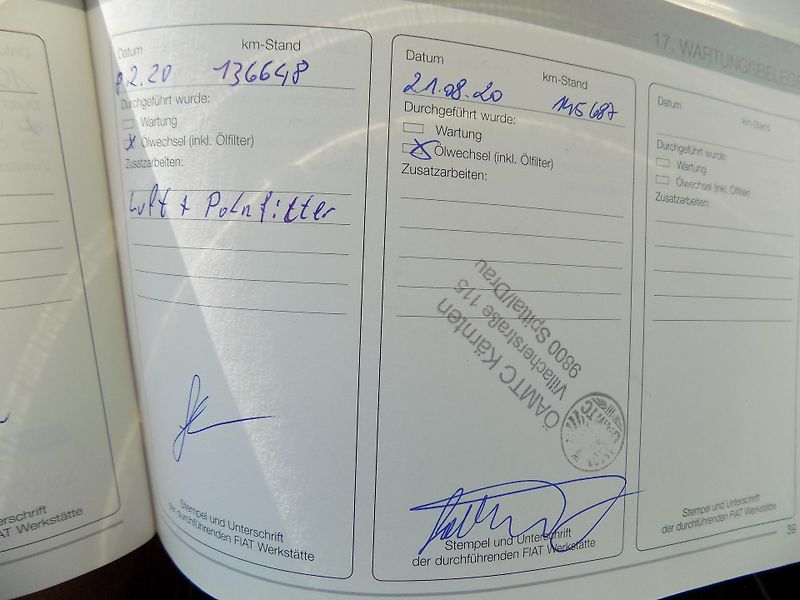 17. WARTUNGSBELEGE
Datum km-Stand
8.2.20 136648
Durchgeführt wurde:
Wartung
x Ölwechsel (inkl. Ölfilter)
Zusatzarbeiten:
Luft + Polnfilter
Stempel und Unterschrift
der durchführenden FIAT Werkstätte
Datum km-Stand
21.08.20 145687
Durchgeführt wurde:
Wartung
x Ölwechsel (inkl. Ölfilter)
Zusatzarbeiten:
ÖAMTC Kärnten
Villacherstraße 115
9800 Spittal/Drau
ÖAMTC
Stempel und Unterschrift
der durchführenden FIAT Werkstätte
Datum km-Stand
Durchgeführt wurde:
Wartung
Ölwechsel (inkl. Ölfilter)
Zusatzarbeiten:
Stempel und Unterschrift
der durchführenden FIAT Werkstätte
39